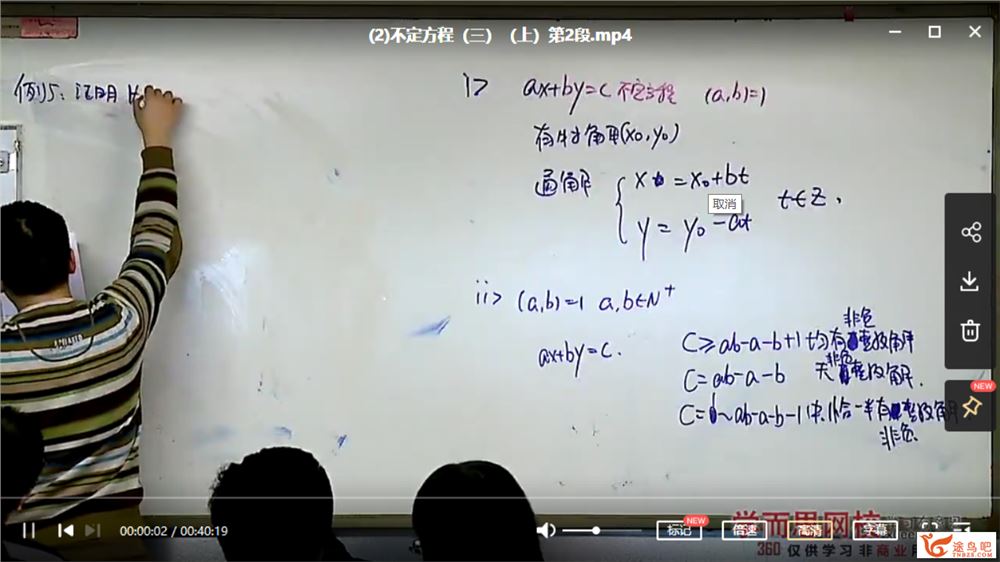 (2)不定方程（三）（上）第2段.mp4
例5：证明
i> ax+by=c 不定方程 (a,b)=1
有特解(x₀,y₀)
通解 { x = x₀+bt
y = y₀-at t∈Z,
取消
ii> (a,b)=1 a,b∈N⁺
ax+by=c.
非负
C≥ab-a-b+1 均有整数解
非负
C=ab-a-b 无整数解.
C=0~ab-a-b-1中,恰一半有整数解
非负
NEW
00:00:02 / 00:40:19
NEW
标记 倍速 高清 字幕
学而思网校
360 仅供学习 非商业用
途鸟吧
TNBZS.COM